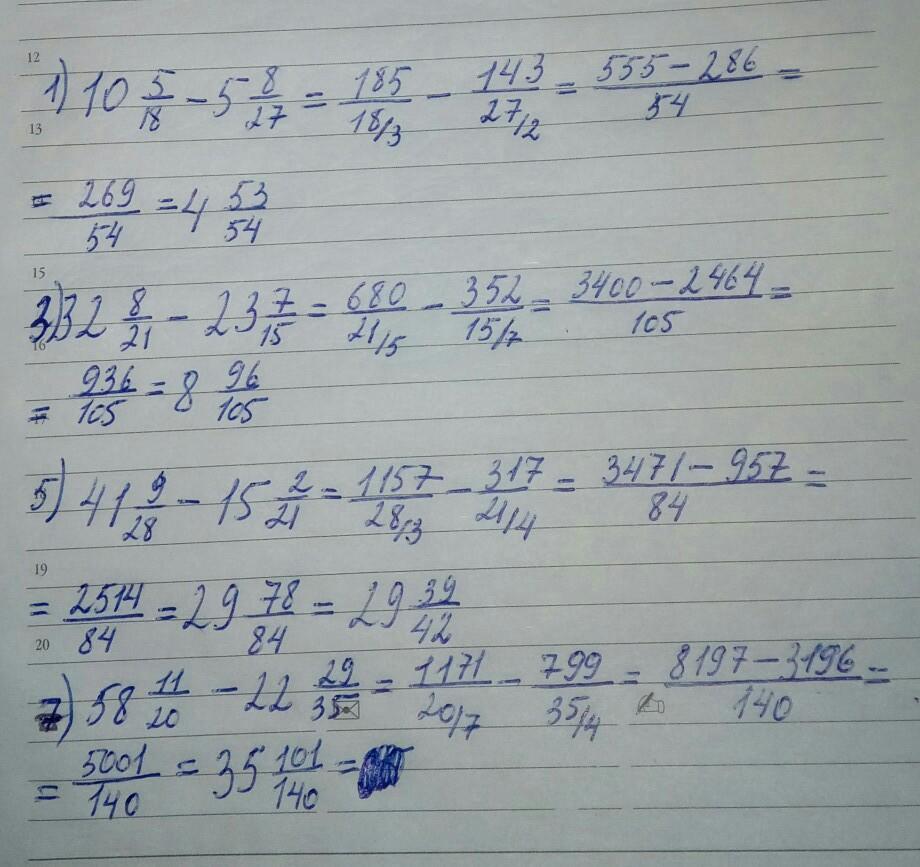 12
1) 10 5/18 - 5 8/27 = 185/18/3 - 143/27/2 = 555 - 286/54 =
13
= 269/54 = 4 53/54
15
3) 32 8/21 - 23 7/15 = 680/21/5 - 352/15/7 = 3400 - 2464/105 =
16
= 936/105 = 8 96/105
5) 41 9/28 - 15 2/21 = 1157/28/3 - 317/21/4 = 3471 - 957/84 =
19
= 2514/84 = 29 78/84 = 29 39/42
20
7) 58 11/20 - 22 29/35 = 1171/20/7 - 799/35/4 = 8197 - 3196/140 =
= 5001/140 = 35 101/140 =